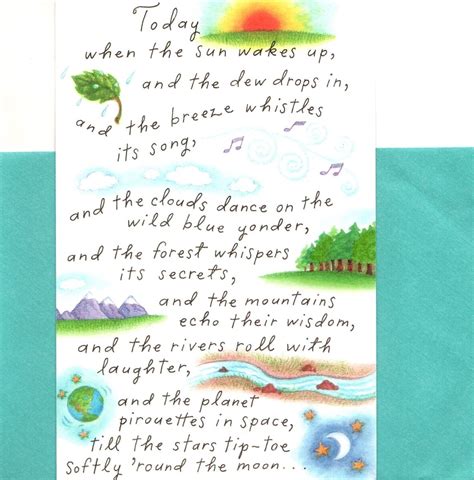 Today
when the sun wakes up,
and the dew drops in,
and the breeze whistles
its song,
and the clouds dance on the
wild blue yonder,
and the forest whispers
its secrets,
and the mountains
echo their wisdom,
and the rivers roll with
laughter,
and the planet
pirouettes in space,
till the stars tip-toe
softly 'round the moon...